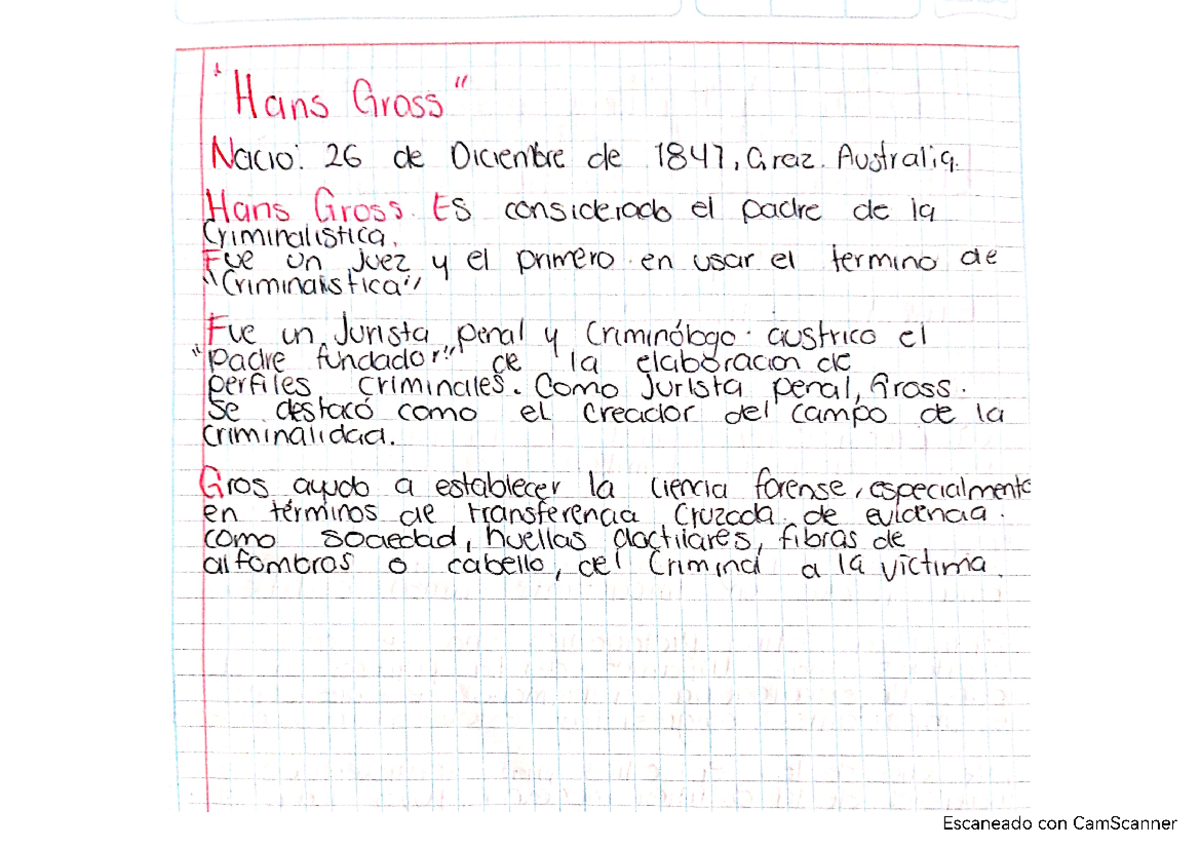 "Hans Gross"
Nacio: 26 de Diciembre de 1847, Graz. Australia.
Hans Gross. Es considerado el padre de la
Criminalistica.
Fue un Juez y el primero en usar el termino de
"Criminalistica"
Fue un Jurista penal y Criminólogo austrico el
"Padre fundador" de la elaboracion de
perfiles criminales. Como Jurista penal, Gross.
Se destacó como el creador del campo de la
criminalidad.
Gros ayudo a establecer la ciencia forense, especialmente
en términos de transferencia cruzada de evidencia.
como sociedad, huellas dactilares, fibras de
alfombros o cabello, del Criminal a la víctima.
Escaneado con CamScanner